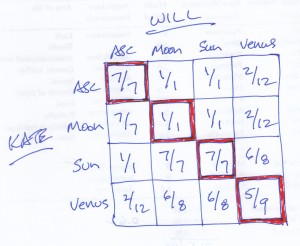 WILL
ASC Moon Sun Venus
ASC 7/7 1/1 1/1 2/12
KATE
Moon 7/7 1/1 1/1 2/12
Sun 1/1 7/7 7/7 6/8
Venus 2/12 6/8 6/8 5/9